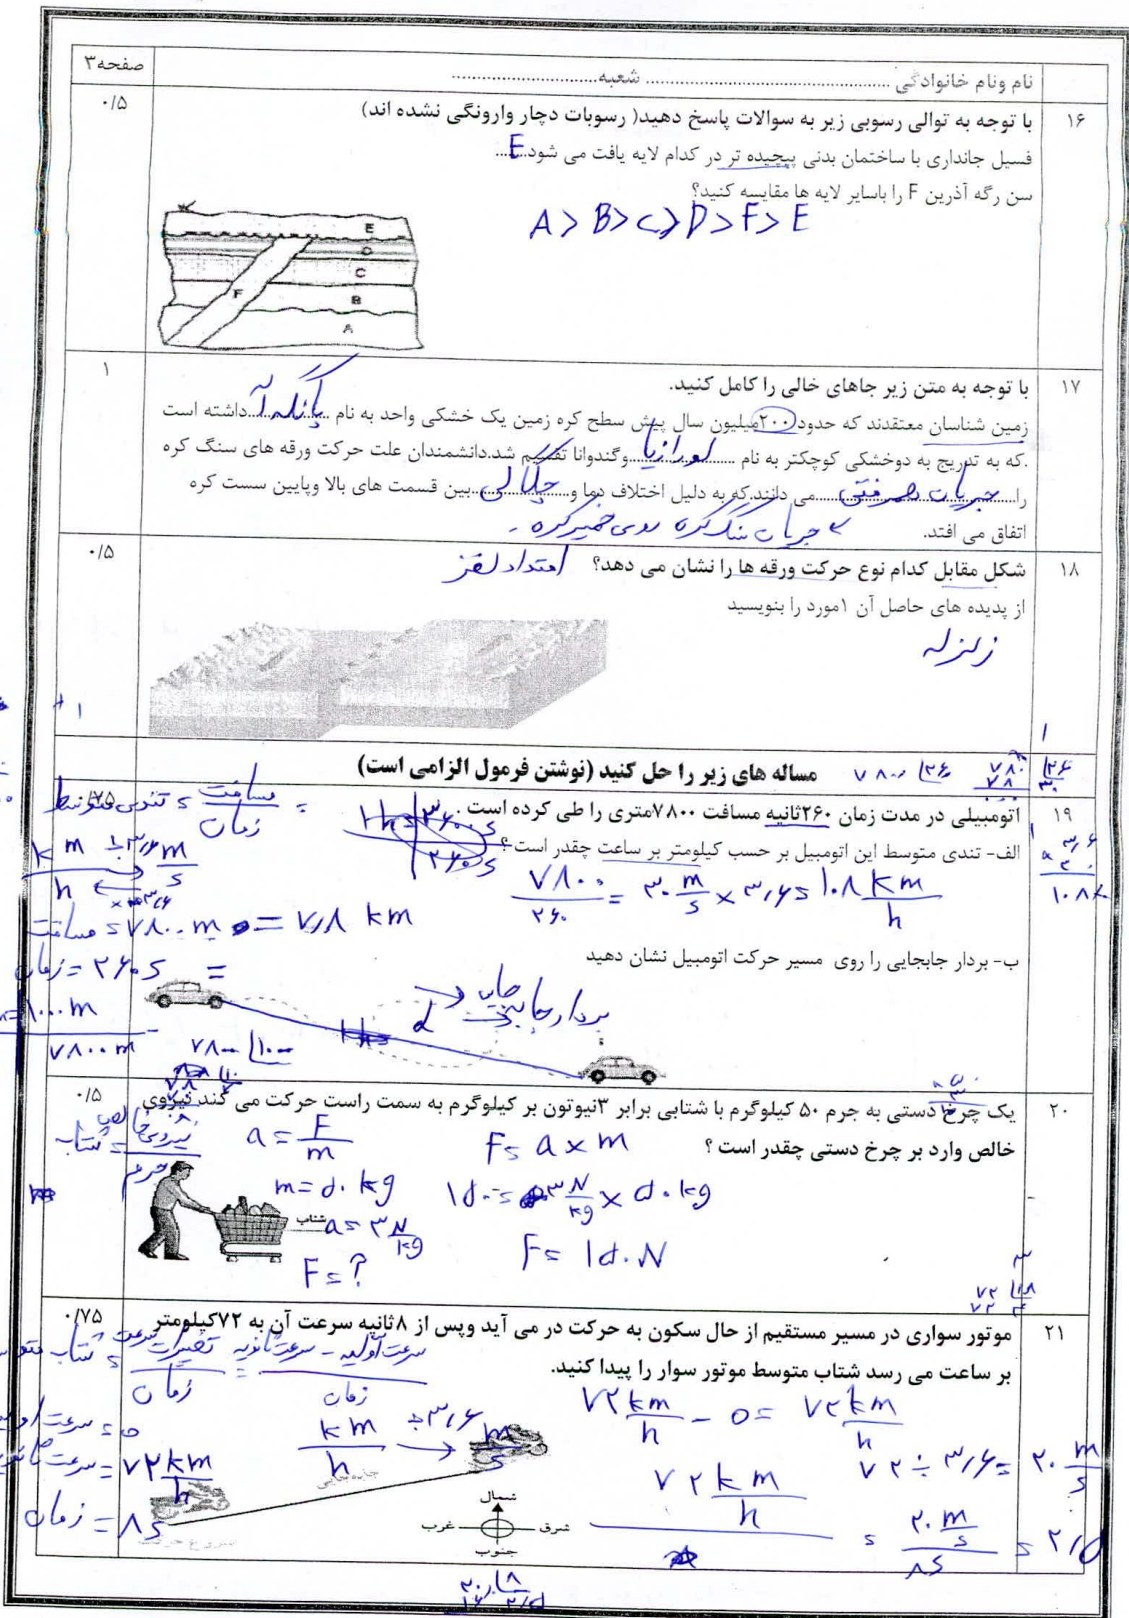 نام ونام خانوادگی ........................ شعبه........................
صفحه۳
۱۶
با توجه به توالی رسوبی زیر به سوالات پاسخ دهید( رسوبات دچار وارونگی نشده اند)
۰/۵
فسیل جانداری با ساختمان بدنی پیچیده تر در کدام لایه یافت می شود...E...
سن رگه آذرین F را باسایر لایه ها مقایسه کنید؟
A > B > C > D > F > E
E
D
C
F
B
A
۱۷
با توجه به متن زیر جاهای خالی را کامل کنید.
۱
زمین شناسان معتقدند که حدود ۲۰۰میلیون سال پیش سطح کره زمین یک خشکی واحد به نام ...پانگه آ...داشته است
.که به تدریج به دوخشکی کوچکتر به نام ...لورازیا...وگندوانا تقسیم شد.دانشمندان علت حرکت ورقه های سنگ کره
را...جریان همرفتی...می دانند.که به دلیل اختلاف دما و...چگالی...بین قسمت های بالا وپایین سست کره
اتفاق می افتد.
جریان سنگ کره روی خمیرکره
۱۸
شکل مقابل کدام نوع حرکت ورقه ها را نشان می دهد؟ امتداد لغز
۰/۵
از پدیده های حاصل آن ۱مورد را بنویسید
زلزله
مساله های زیر را حل کنید (نوشتن فرمول الزامی است)
۷۸۰۰ ۲۶۰
۷۸۰ ۲۶
۷۸ ۳۰
۱۹
اتومبیلی در مدت زمان ۲۶۰ثانیه مسافت ۷۸۰۰متری را طی کرده است .
۰/۷۵
تندی متوسط = مسافت / زمان
الف- تندی متوسط این اتومبیل بر حسب کیلومتر بر ساعت چقدر است ؟
1h = ۳۶۰۰s
۲۶۰s
km/h ÷۳/۶ m/s
×۳/۶
۷۸۰۰/۲۶۰ = ۳۰ m/s × ۳/۶ = ۱۰۸ km/h
۳/۶
×۳۰
۱۰۸
مسافت = ۷۸۰۰ m = ۷/۸ km
زمان = ۲۶۰ s
ب- بردار جابجایی را روی مسیر حرکت اتومبیل نشان دهید
بردار جابجایی
d
۱۰۰۰m
۷۸۰۰m
۷۸۰۰ ۱۰۰۰
۲۰
یک چرخ دستی به جرم ۵۰ کیلوگرم با شتابی برابر ۳نیوتون بر کیلوگرم به سمت راست حرکت می کند نیروی
۰/۵
خالص وارد بر چرخ دستی چقدر است ؟
شتاب = نیروی خالص / جرم
a = F/m
F = a × m
m = ۵۰ kg
۱۵۰ = ۳ N/kg × ۵۰ kg
شتاب
a = ۳ N/kg
F = ?
F = ۱۵۰ N
۲۱
موتور سواری در مسیر مستقیم از حال سکون به حرکت در می آید وپس از ۸ثانیه سرعت آن به ۷۲کیلومتر
۰/۷۵
بر ساعت می رسد شتاب متوسط موتور سوار را پیدا کنید.
تغییرات سرعت / زمان = سرعت اولیه - سرعت ثانویه / زمان
km/h ÷۳/۶ m/s
۷۲ km/h - 0 = ۷۲ km/h
۷۲ ÷ ۳/۶ = ۲۰ m/s
۷۲ km/h = سرعت ثانویه
زمان = ۸s
جابه‌جایی
شمال
شرق
غرب
جنوب
۷۲ km/h
= ۲۰ m/s / ۸s = ۲/۵
۲۰ ۸
۱۶ ۲/۵